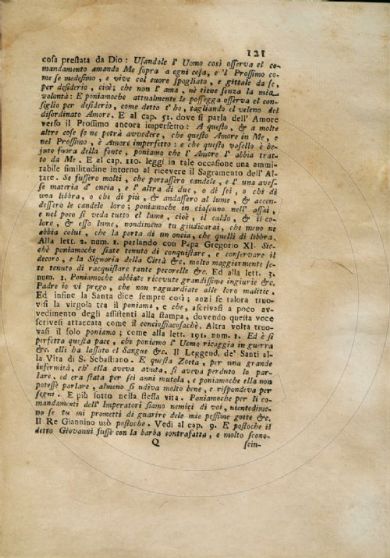 121
cosa prestata da Dio: Usandole l' Uomo così osserva el co-
mandamento amando Me sopra a ogni cosa, e 'l Prossimo co-
me se medesimo, e vive col cuore spogliato, e gittale da se,
per desiderio, cioè; che non l' ama, nè tiene senza la mia
volontà: E poniamche attualmente le possegga osserva el con-
siglio per desiderio, come detto t' ho, tagliando el veleno del
disordinato Amore. E al cap. 51. dove si parla dell' Amore
verso il Prossimo ancora imperfetto: A questo, & a molte
altre cose se ne potrà avvedere, che questo Amore in Me, e
nel Prossimo, è Amore imperfetto: e che questo vasello è be-
juto fuora della fonte, poniamo che l' Amore l' abbia trat-
to da Me. E al cap. 110. leggi in tale occasione una ammi-
rabile similitudine intorno al ricevere il Sagramento dell' Al-
tare. Se fussero molti, che portassero candele, e l' una aves-
se materia d' oncia, e l' altra di due, o di sei, o chi di
una libbra, o chi di più, & andassero al lume, & accen-
dessero le candele loro; poniamche in ciascuno nell' assai,
e nel poco si veda tutto el lume, cioè, el caldo, & il co-
lore, & esso lume, nondimeno tu giudicarai, che meno ne
abbia colui, che la porta di un oncia, che quelli di libbra.
Alla lett. 2. num. 2. parlando con Papa Gregorio XI. Sic-
chè poniamoche siate tenuto di conquistare, e conservare il
decoro, e la Signoria della Città &c. molto maggiormente se-
te tenuto di racquistare tante pecorelle &c. Ed alla lett. 3.
num. 2. Poniamoche abbiate ricevute grandissime ingiurie &c.
Padre io vi prego, che non raguardiate alle loro malitie,
Ed infine la Santa dice sempre così; anzi se talora truo-
vasi la virgola tra il poniamo, e che, ascrivasi a poco av-
vedimento degli assistenti alla stampa, dovendo questa voce
scriversi attaccata come il conciossiacosachè. Altra volta truo-
vasi il solo poniamo; come alla lett. 191. num. 2. Ed è sì
perfetta questa pace, chi poniamo l' Uomo ricaggia in guerra
&c. elli ha lassato el Sangue &c. Il Leggend. de' Santi al-
la Vita di S. Sebastiano. E questa Zoeta, per una grande
infermità, ch' ella aveva avuta, si aveva perduto la par-
lare, ed era stata per sei anni mutola, e poniamche ella non
potesse parlare, almeno si udiva molto bene, e rispondeva per
segni. E più sotto nella stessa vita. Poniamoche per li co-
mandamenti dell' Imperatori siamo nemici di voi, nientedime-
no se tu mi prometti di guarire delle mie pessime gotte &c.
Il Re Giannino usò postoche. Vedi al cap. 9. E postoche il
detto Giovanni fusse con la barba contrafatta, e molto scono-
Q
scin-